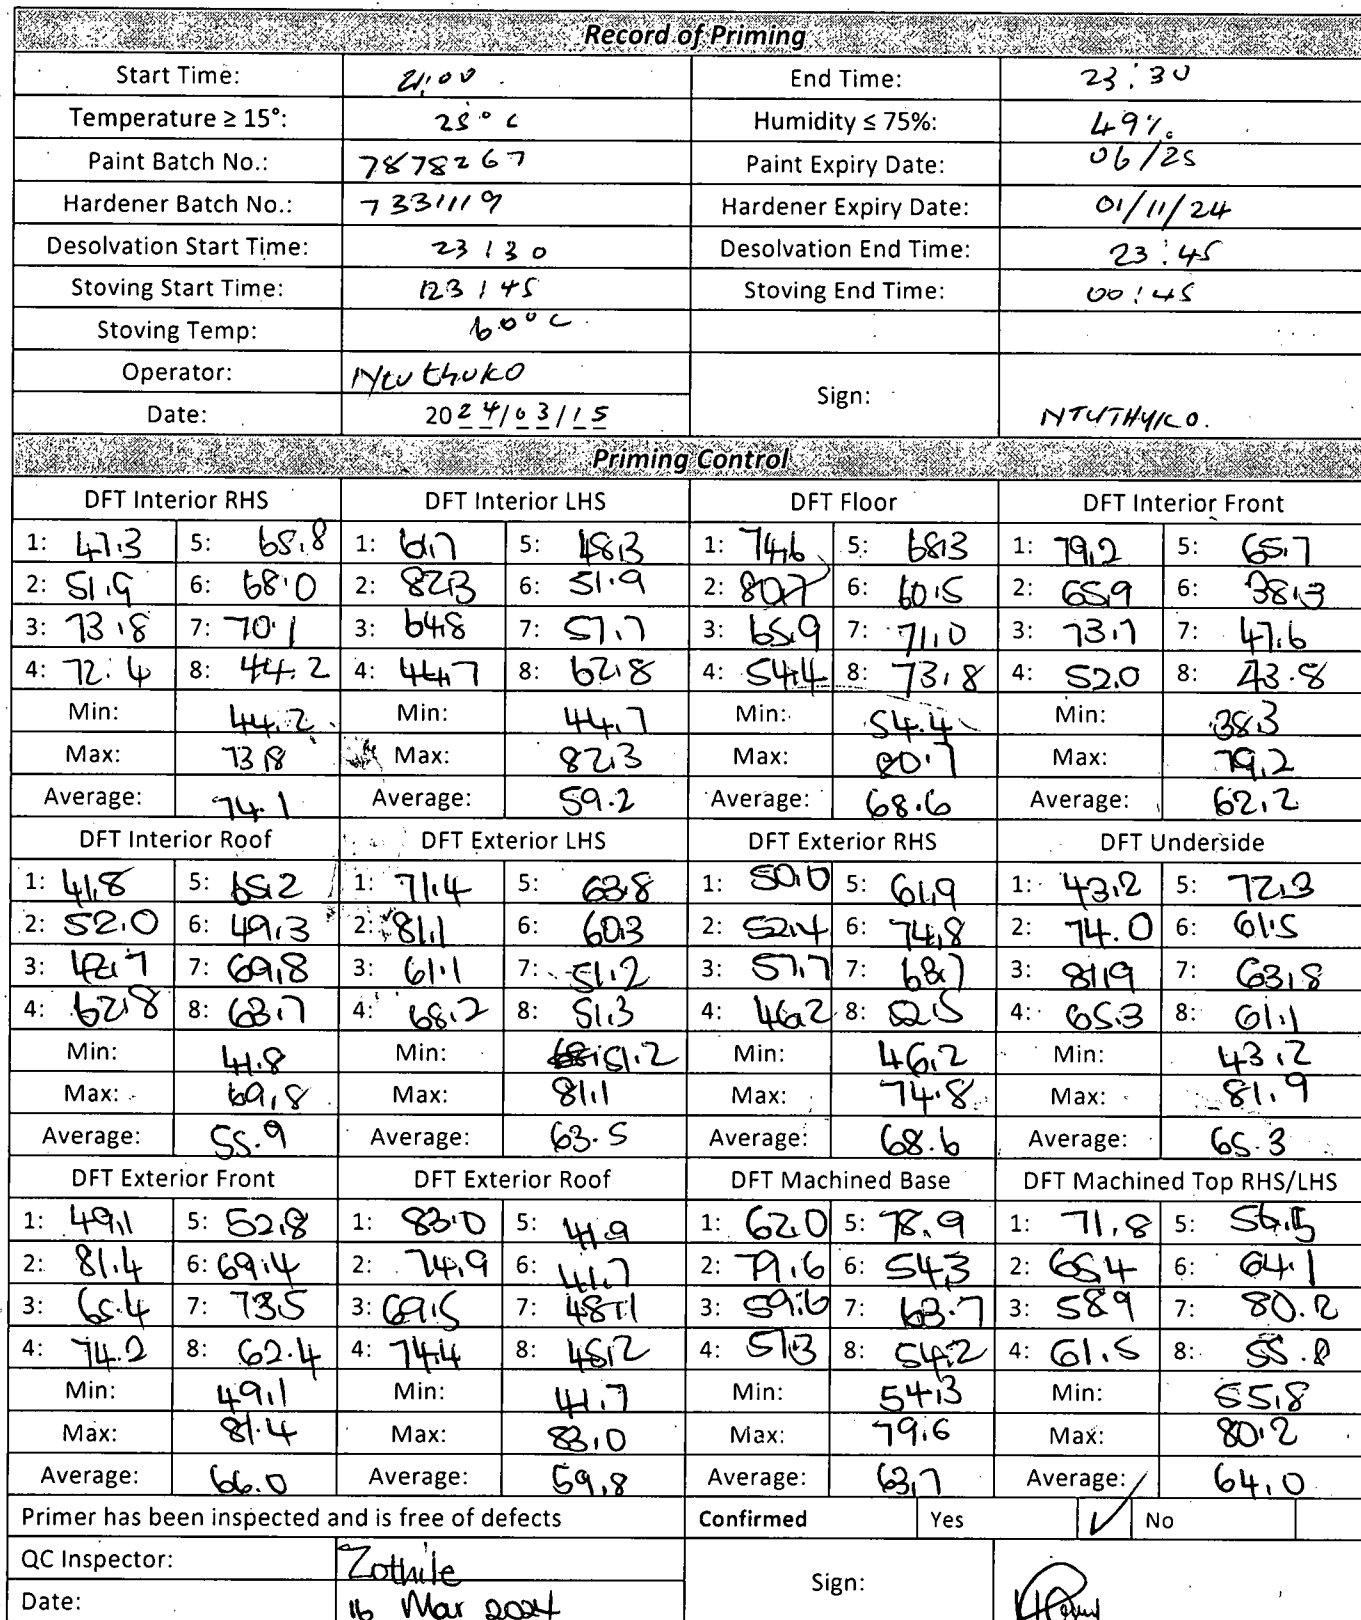 Record of Priming
Start Time: 21:00 End Time: 23:30
Temperature ≥ 15°: 25°c Humidity ≤ 75%: 49%
Paint Batch No.: 7878267 Paint Expiry Date: 06/25
Hardener Batch No.: 7331119 Hardener Expiry Date: 01/11/24
Desolvation Start Time: 23:30 Desolvation End Time: 23:45
Stoving Start Time: 23:45 Stoving End Time: 00:45
Stoving Temp: 60°C
Operator: Ntuthuko Sign: NTUTHUKO.
Date: 2024/03/15
Priming Control
DFT Interior RHS DFT Interior LHS DFT Floor DFT Interior Front
1: 47.3 5: 65.8 1: 61.7 5: 48.3 1: 74.6 5: 68.3 1: 79.2 5: 65.7
2: 51.9 6: 68.0 2: 82.3 6: 51.9 2: 80.7 6: 60.5 2: 65.9 6: 38.3
3: 73.8 7: 70.1 3: 64.8 7: 57.7 3: 65.9 7: 71.0 3: 73.7 7: 47.6
4: 72.6 8: 44.2 4: 44.7 8: 62.8 4: 54.4 8: 73.8 4: 52.0 8: 43.8
Min: 44.2 Min: 44.7 Min: 54.4 Min: 38.3
Max: 73.8 Max: 82.3 Max: 80.7 Max: 79.2
Average: 74.1 Average: 59.2 Average: 68.6 Average: 62.2
DFT Interior Roof DFT Exterior LHS DFT Exterior RHS DFT Underside
1: 41.8 5: 65.2 1: 71.4 5: 63.8 1: 50.0 5: 61.9 1: 43.2 5: 72.3
2: 52.0 6: 49.3 2: 81.1 6: 60.3 2: 52.4 6: 74.8 2: 74.0 6: 61.5
3: 42.7 7: 69.8 3: 61.1 7: 51.2 3: 57.7 7: 68.7 3: 81.9 7: 63.8
4: 62.8 8: 63.7 4: 68.2 8: 51.3 4: 46.2 8: 52.5 4: 65.3 8: 61.1
Min: 41.8 Min: 51.2 Min: 46.2 Min: 43.2
Max: 69.8 Max: 81.1 Max: 74.8 Max: 81.9
Average: 55.9 Average: 63.5 Average: 68.6 Average: 65.3
DFT Exterior Front DFT Exterior Roof DFT Machined Base DFT Machined Top RHS/LHS
1: 49.1 5: 52.8 1: 83.0 5: 41.9 1: 62.0 5: 78.9 1: 71.8 5:
2: 81.4 6: 69.4 2: 74.9 6: 41.7 2: 79.6 6: 54.3 2: 65.4 6: 64.1
3: 65.4 7: 73.5 3: 69.5 7: 48.1 3: 59.6 7: 63.7 3: 58.9 7: 80.2
4: 74.2 8: 62.4 4: 74.4 8: 45.2 4: 57.3 8: 54.2 4: 61.5 8: 55.8
Min: 49.1 Min: 41.7 Min: 54.3 Min: 55.8
Max: 81.4 Max: 83.0 Max: 79.6 Max: 80.2
Average: 66.0 Average: 59.8 Average: 63.7 Average: 64.0
Primer has been inspected and is free of defects Confirmed Yes ✓ No
QC Inspector: Zothile Sign:
Date: 16 Mar 2024